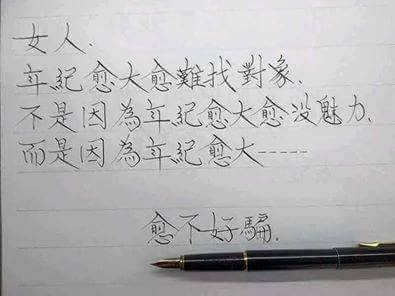 女人.
年紀愈大愈難找對象.
不是因為年紀愈大愈没魅力.
而是因為年紀愈大-----
愈不好騙.